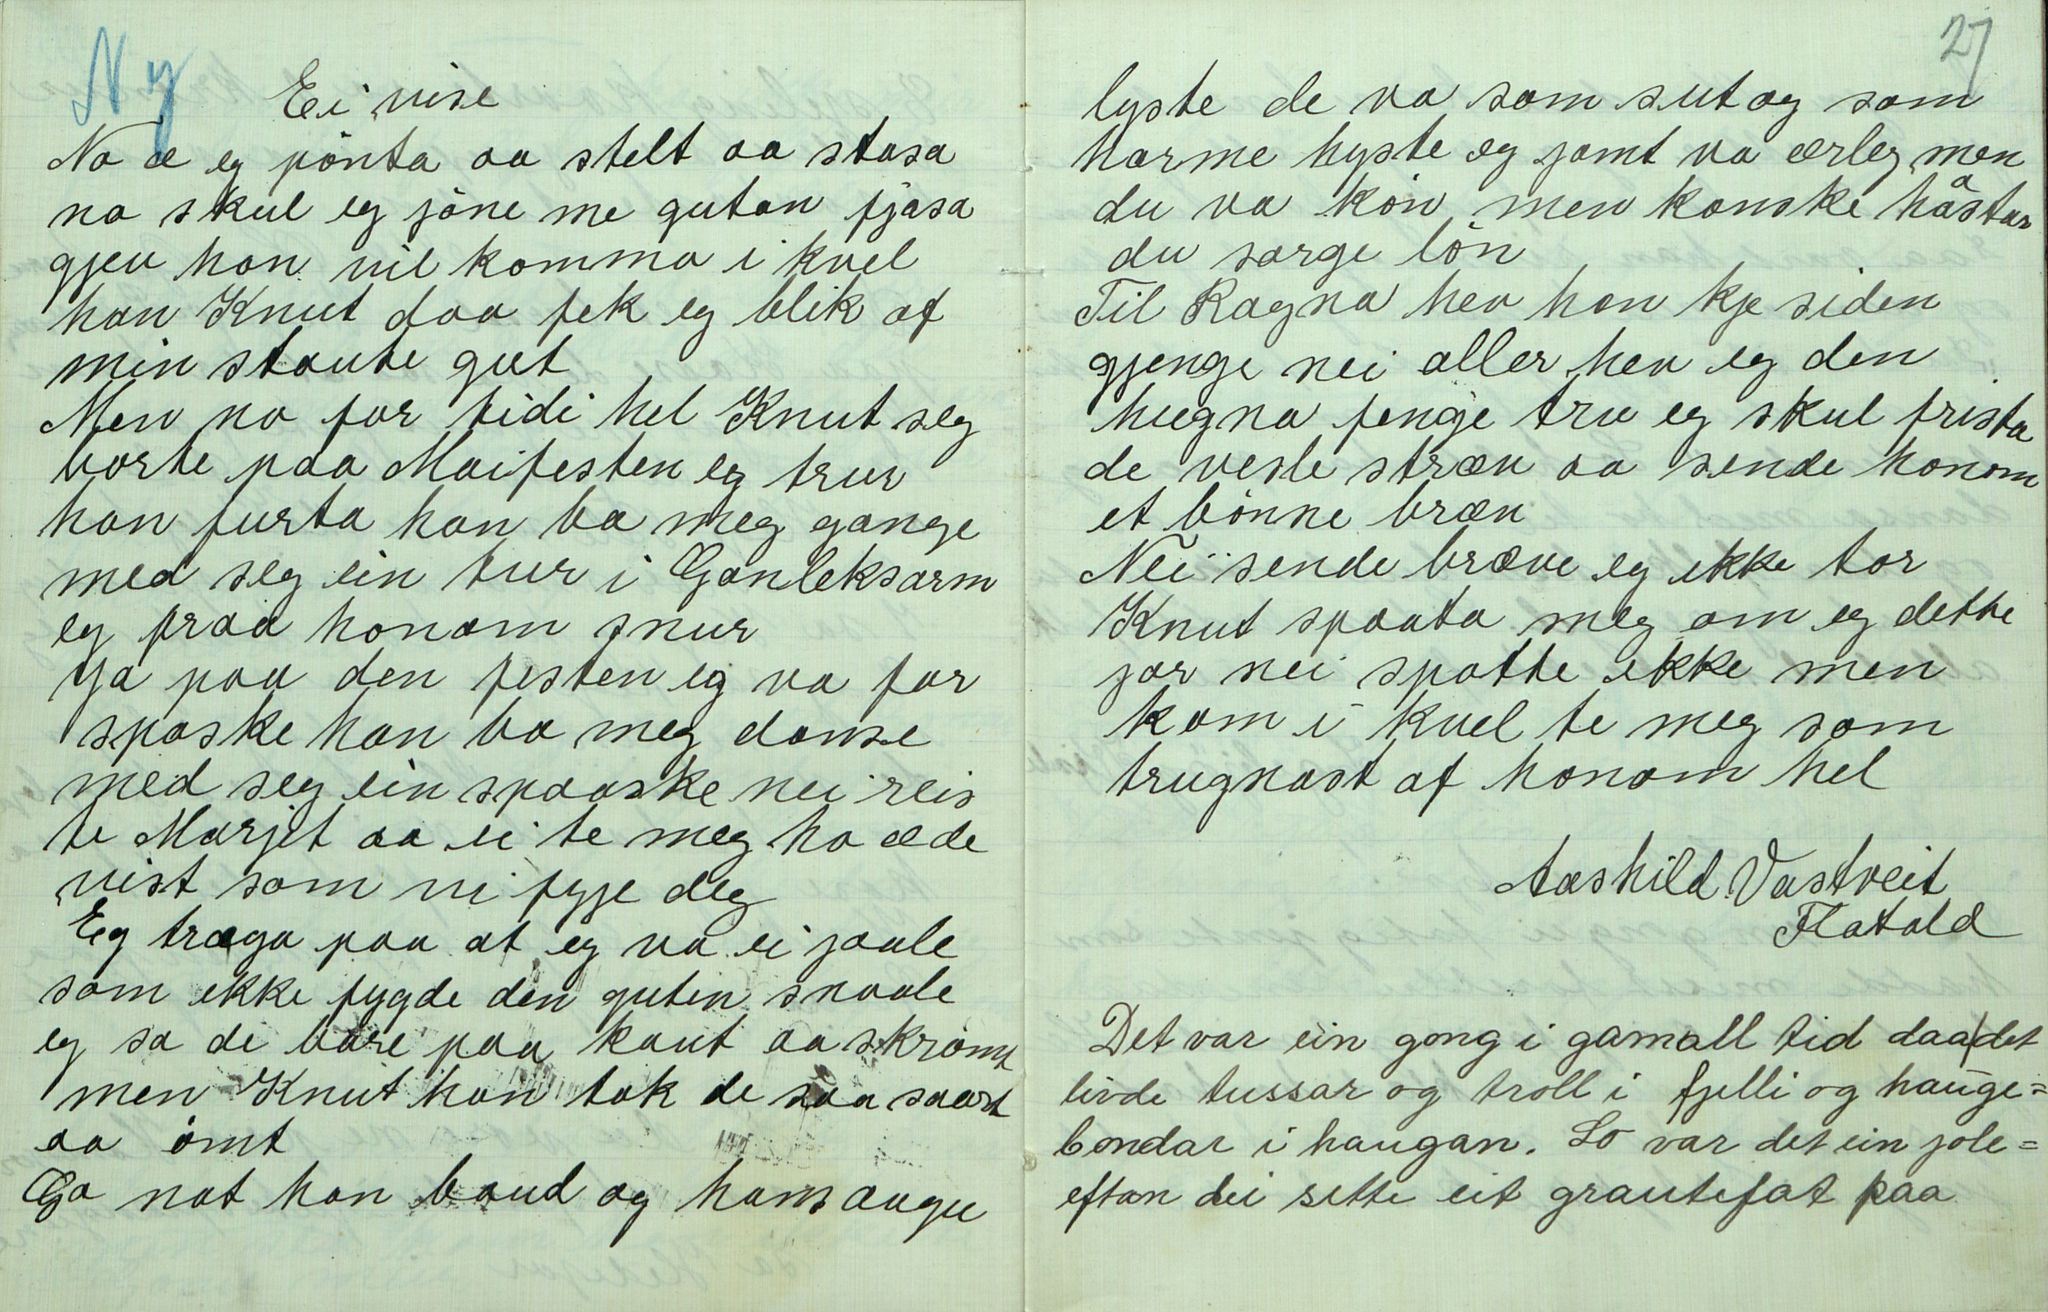 Ny
Ei vise
No æ eg pönta aa stelt aa stasa
no skul eg jöne me gutan fjasa
gjev han vil komma i kvel
han Knut daa fek eg blik af
min staute gut
Men no for tidi hel Knut seg
borte paa Maifesten eg trur
han furta han ba meg gange
med seg ein tur i Ganleksarm
eg fraa honom snur
Ja paa den festen eg va for
spaske han ba meg danse
med seg ein spaaske nei reis
te Marjet aa ei te meg ho æ de
vist som vi fyje deg
Eg træga paa at eg va ei jaale
som ikke fygde den guten snaale
eg sa de bare paa kaut aa skrömt
men Knut han tok de saa saart
aa ömt
Go nat han baud og hans augu
27
lyste de va som sut og som
harme hyste eg jamt va ærleg men
du va kön men kanske håstar
du sorge lön
Til Ragna hev han kje siden
gjenge nei aller hev eg den
hugna fenge tru eg skul frista
de vesle stræv aa sende honom
et bönne bræv
Nei sende bræve eg ikke tor
Knut spaata meg om eg dette
jor nei spotte ikke men
kom i kvel te meg som
trugnast af honom hel
Aashild Vastveit
Flatald
Det var ein gong i gamall tid daa det
livde tussar og troll i fjelli og hauge=
bondar i haugan. So var det ein jole=
eftan dei sette eit grautefat paa